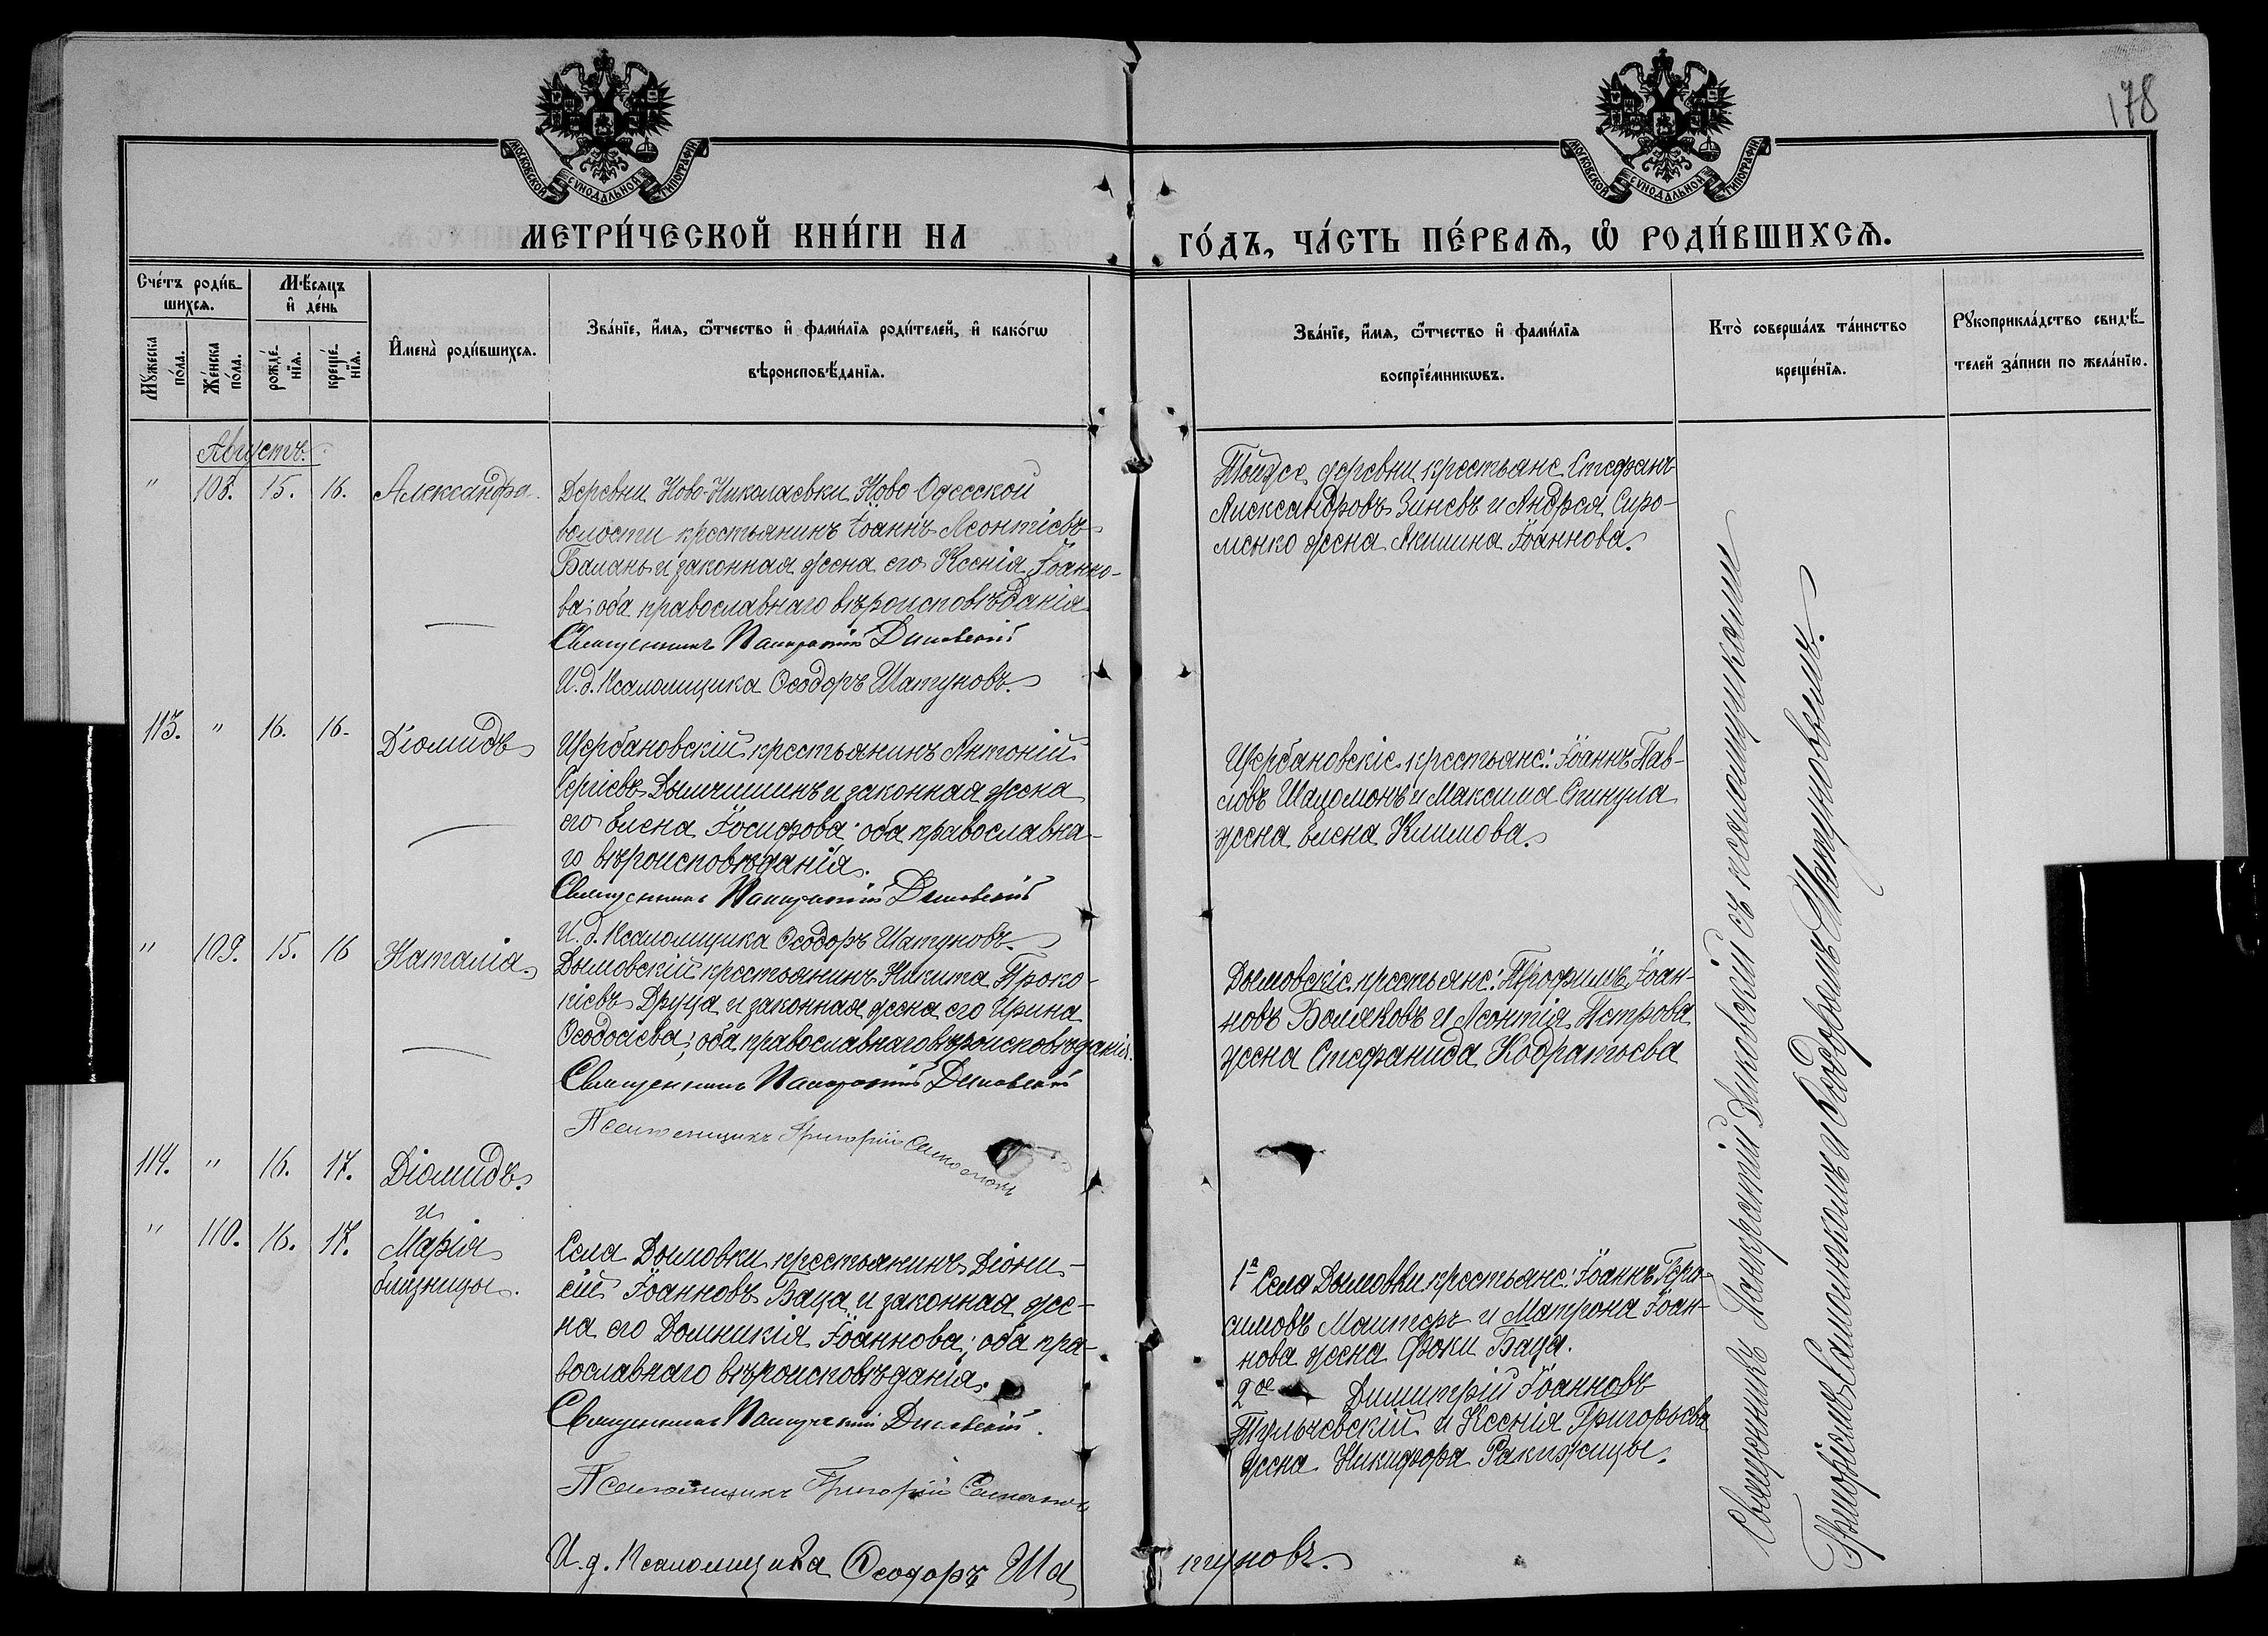 178
МОСКОВСКОЙ СѴНОДАЛЬНОЙ ТИПОГРАФІИ
МОСКОВСКОЙ СѴНОДАЛЬНОЙ ТИПОГРАФІИ
МЕТРИ́ЧЕСКОЙ КНИ́ГИ НА
ГО́ДЪ, ЧА́СТЬ ПЕ́РВАѦ, Ѡ҆ РОДИ́ВШИХСѦ.
Сче́тъ роди́в-
шихсѧ.
Мѣ́сѧцъ
и҆ де́нь
Мꙋ́жеска по́ла.
Же́нска по́ла.
рожде́-
нїѧ.
креще́-
нїѧ.
И҆мена̀ роди́вшихсѧ.
Зва́нїе, и҆́мѧ, ѻ҆́тчество и҆ фами́лїѧ роди́телей, и҆ како́гѡ
вѣроисповѣ́данїѧ.
Зва́нїе, и҆́мѧ, ѻ҆́тчество и҆ фами́лїѧ
воспрїе́мникѡвъ.
Кто̀ соверша́лъ та́инство
креще́нїѧ.
Рꙋкоприкла́дство свидѣ́-
телей за́писи по жела́нїю.
Августъ.
" 108. 15. 16. Александра.
Деревни Ново-Николаевки Ново Одесской
волости крестьянинъ Іоаннъ Леонтіевъ
Баланъ и законная жена его Ксенія Іоанно-
ва; оба православнаго вѣроисповѣданія
Священникъ Панкратій Дыновскій
И.д. Псаломщика Ѳеодоръ Шатуновъ.
Тойже деревни крестьяне Стефанъ
Александровъ Зиневъ и Андрея Сиро-
менко жена Акилина Іоаннова.
113. " 16. 16. Діомидъ
Щербановскій крестьянинъ Антоній
Сергіевъ и законная жена
его Елена Іосифова оба православна-
го вѣроисповѣданія.
Священникъ Панкратій Дыновскій
И.д. Псаломщика Ѳеодоръ Шатуновъ.
Щербановскіе крестьяне: Іоаннъ Пав-
ловъ Шаломонъ и Максима
жена Елена Климова.
" 109. 15. 16 Наталія.
Дымовскій крестьянинъ Никита Проко-
піевъ Друца и законная жена его Ирина
Ѳеодосіева; оба православнаго вѣроисповѣданія.
Священникъ Панкратій Дыновскій
Псаломщикъ Григорій
Дымовскіе крестьяне: Трофимъ Іоан-
новъ Боляковъ и Леонтія Петрова
жена Стефанида Кодратьева
114. " 16. 17. Діомидъ
и
" 110. 16. 17. Марія
близнецы.
Села Дымовки крестьянинъ Діони-
сій Іоанновъ Баца и законная же-
на его Домникія Іоаннова; оба пра-
вославнаго вѣроисповѣданія.
Священникъ Панкратій Дыновскій.
Псаломщикъ Григорій
И.д. Псаломщика Ѳеодоръ Шатуновъ.
1ª Села Дымовки крестьяне: Іоаннъ Гера-
симовъ Маштеръ и Матрона Іоан-
нова жена Фоки Баца.
2ое Димитрій Іоанновъ
Тульчевскій и Ксенія Григорьева
жена Никифора Ракижицы.
Священникъ Панкратій Дыновскій съ псаломщиками
Григоріемъ и Ѳеодоромъ Шатуновымъ.